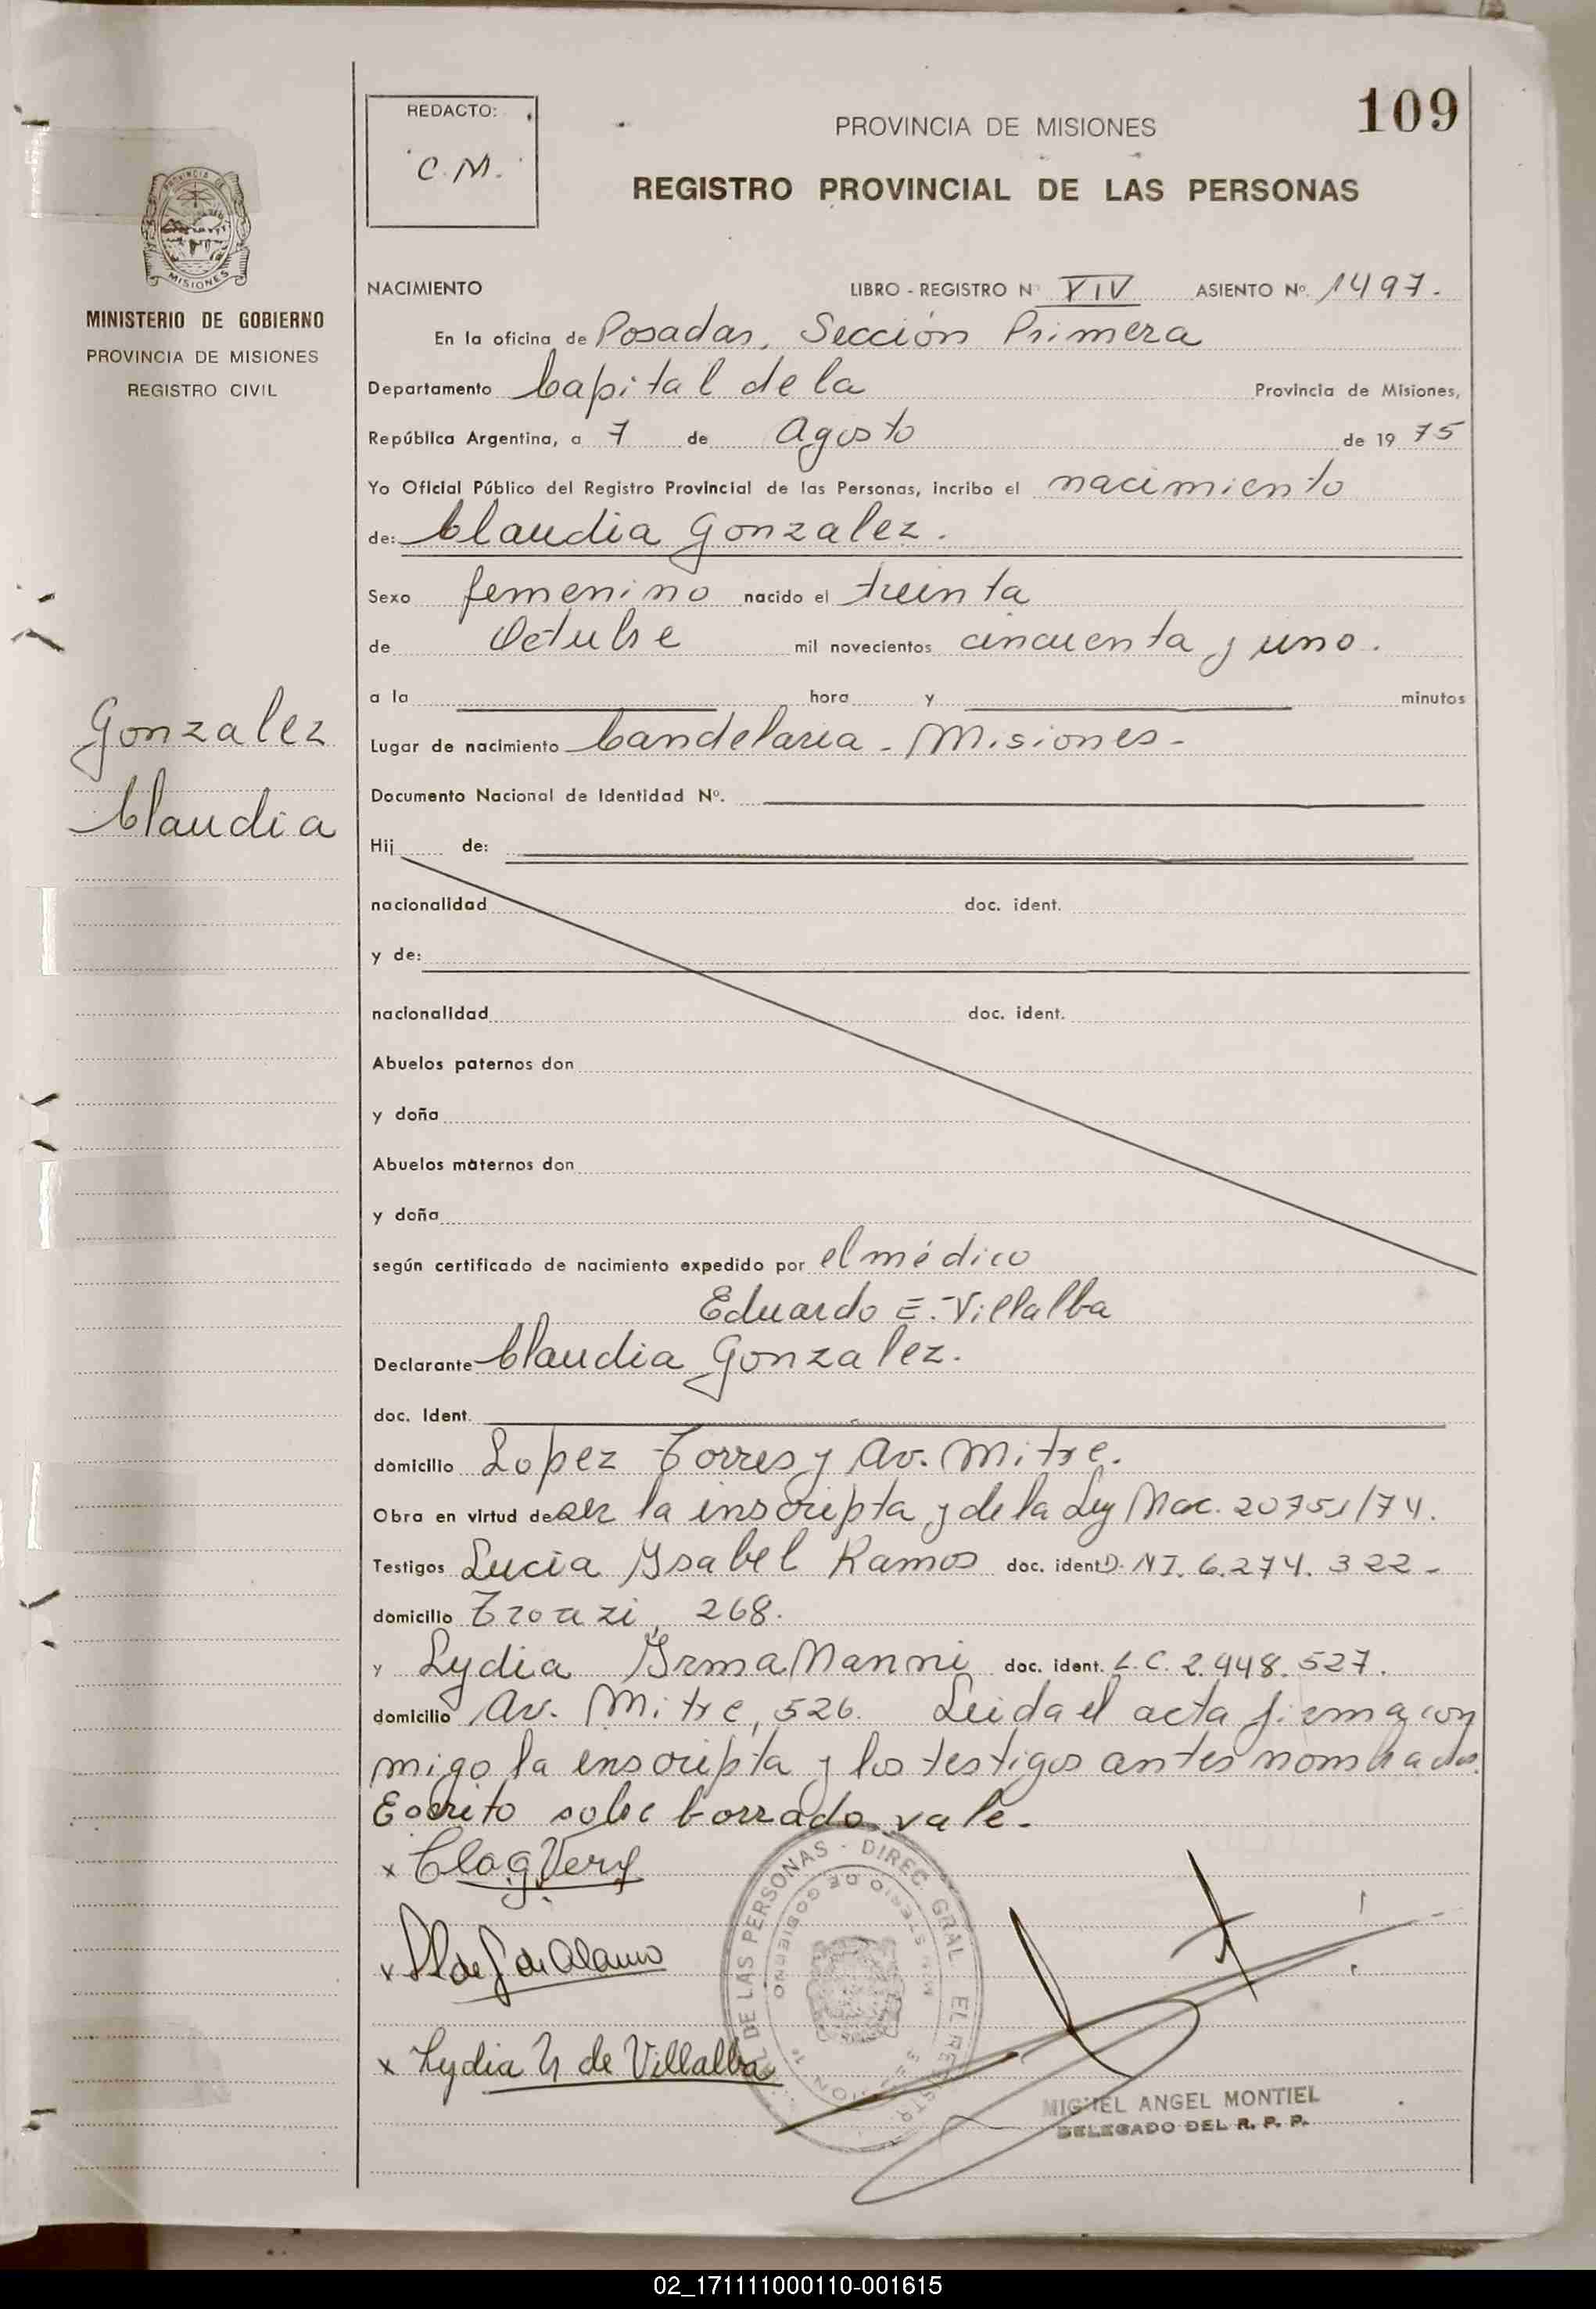 109
REDACTO:
C.M.
PROVINCIA DE MISIONES
REGISTRO PROVINCIAL DE LAS PERSONAS
MISIONES
MINISTERIO DE GOBIERNO
PROVINCIA DE MISIONES
REGISTRO CIVIL
Gonzalez
Claudia
NACIMIENTO LIBRO - REGISTRO Nº ASIENTO Nº. 1497.
En la oficina de Posadas, Sección Primera
Departamento Capital de la Provincia de Misiones,
República Argentina, a 7 de Agosto de 19 75
Yo Oficial Público del Registro Provincial de las Personas, incribo el nacimiento
de: Claudia Gonzalez.
Sexo femenino nacido el treinta
de Octubre mil novecientos cincuenta y uno.
a la hora y minutos
Lugar de nacimiento Candelaria - Misiones -
Documento Nacional de Identidad Nº.
Hij de:
nacionalidad doc. ident.
y de:
nacionalidad doc. ident.
Abuelos paternos don
y doña
Abuelos maternos don
y doña
según certificado de nacimiento expedido por el médico
Eduardo E. Villalba
Declarante Claudia Gonzalez.
doc. Ident.
domicilio Lopez Torres y Av. Mitre.
Obra en virtud de ser la inscripta y de la Ley Nac. 20751/74.
Testigos Lucia Ysabel Ramos doc. ident D.N.I. 6.274.322-
domicilio 268.
y Lydia Yrma Nanni doc. ident. L.C. 2.948.527.
domicilio Av. Mitre, 526. Leida el acta firma con
migo la inscripta y los testigos antes nombrados.
Escrito sobre borrado vale.
x
x
x Lydia N de Villalba
DE LAS PERSONAS - DIREC. GRAL
MINISTERIO DE GOBIERNO
MIGUEL ANGEL MONTIEL
DELEGADO DEL R. P. P.
02_171111000110-001615